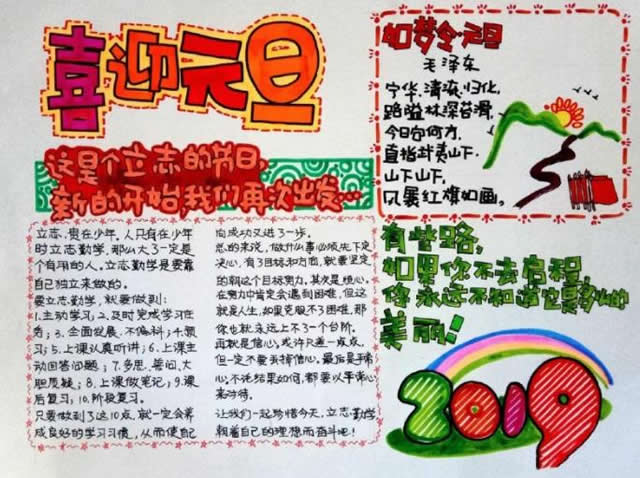 喜迎元旦
这是个立志的节日,
新的开始我们再次出发…
立志,贵在少年。人只有在少年
时立志勤学,那么大了一定是
个有用的人。立志勤学是要靠
自己独立来做的。
要立志勤学,就要做到:
1.主动学习;2.及时完成学习任
务;3.全面发展、不偏科;4.预
习;5.上课认真听讲;6.上课主
动回答问题;7.多思、善问、大
胆质疑;8.上课做笔记;9.课
后复习;10.阶段复习。
只要做到了这10点,就一定会养
成良好的学习习惯,从而使自己
向成功又进了一步。
总的来说,做什么事必须先下定
决心,有了目标和方向,就要坚定
的朝这个目标努力。其次是恒心。
在努力中肯定会遇到困难,但这
就是人生,如果克服不了困难,那
你也就永远上不了一个台阶。
再就是信心,或许只差一点点,
但一定不要丢掉信心。最后是平常
心,不论结果如何,都要以平常心
来对待。
让我们一起珍惜今天,立志勤学
朝着自己的理想而奋斗吧!
如梦令·元旦
毛泽东
宁化、清流、归化,
路隘林深苔滑。
今日向何方,
直指武夷山下。
山下山下,
风展红旗如画。
有些路,
如果你不去启程,
你永远不知道它是多么的
美丽!
2019